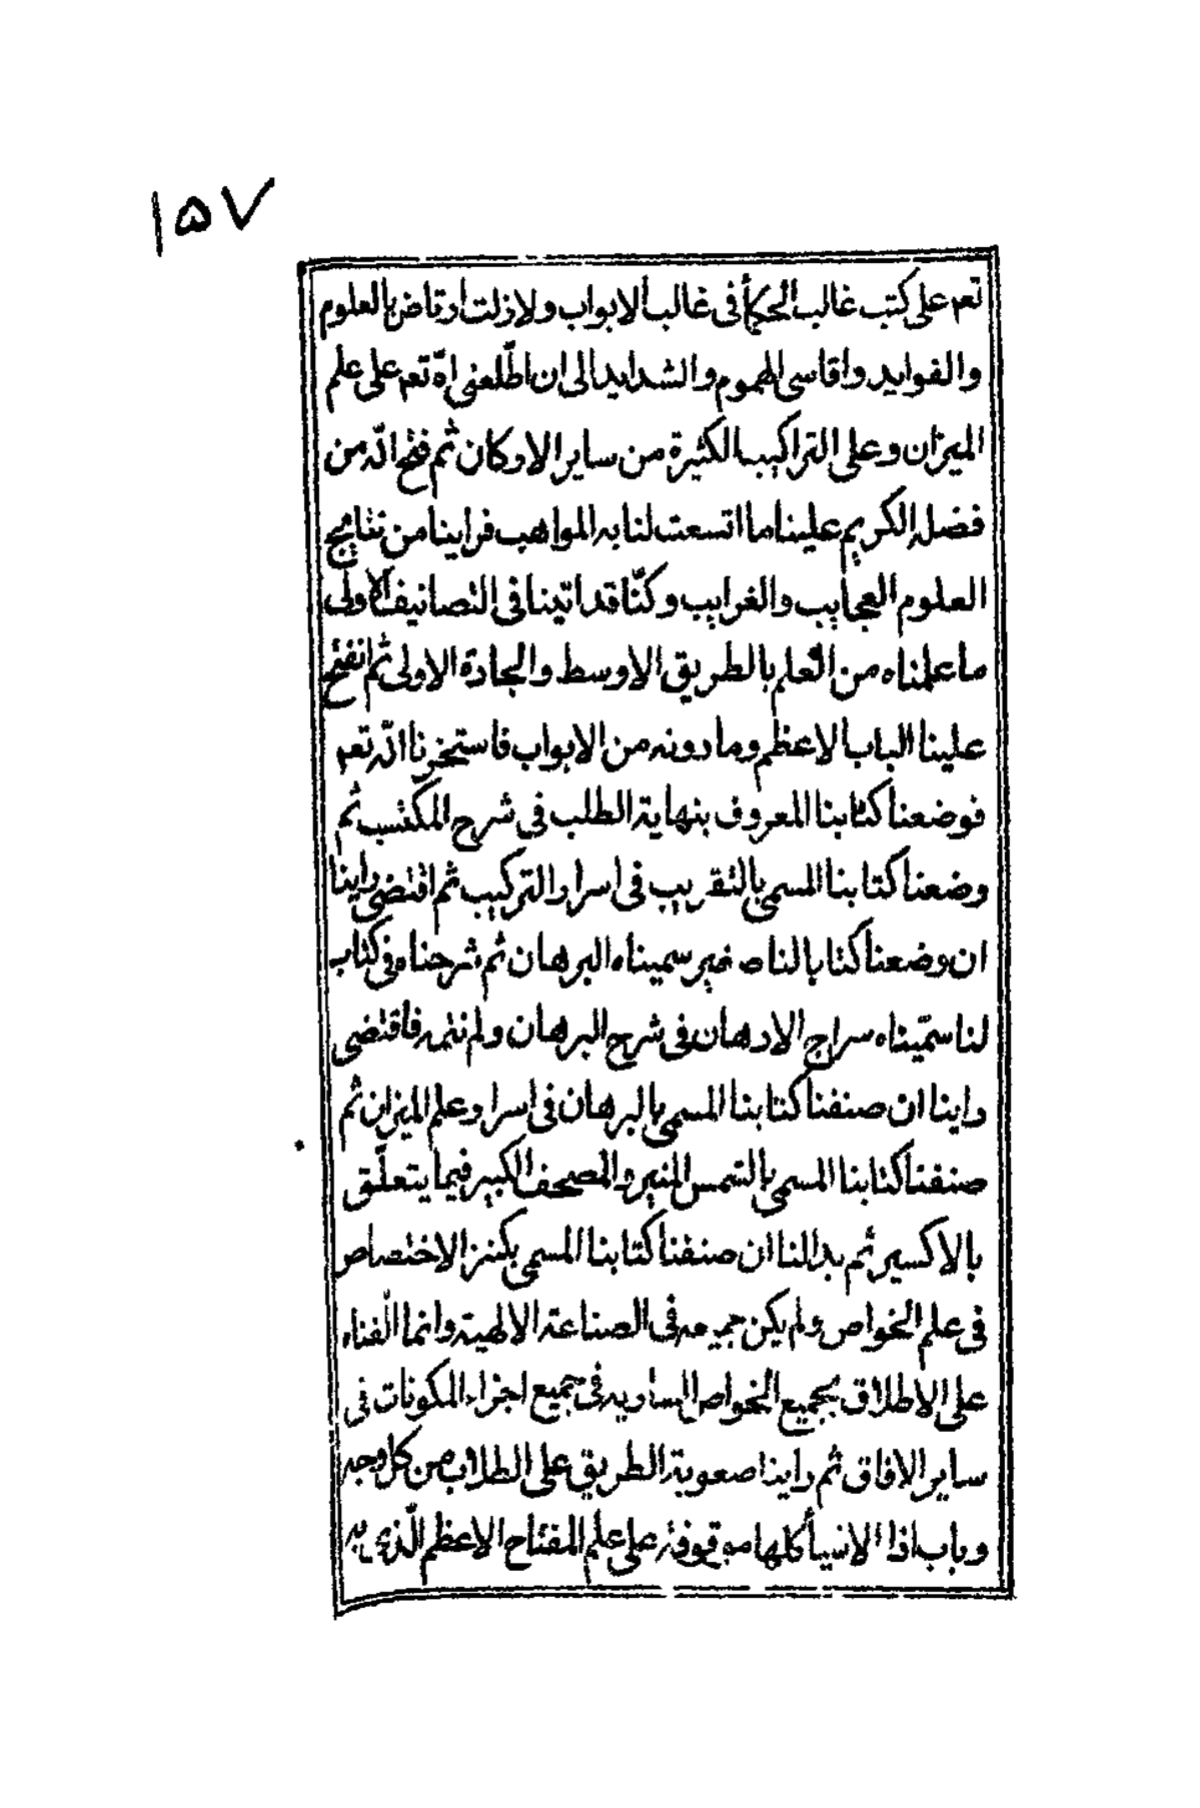 ۱۵۷
تعم على كتب غالب الحكمأ فى غالب الابواب ولازلت ارتاض بالعلوم
والفوايد واقاسى الهموم والشدايد الى ان اطّلعنى اللّه تعم على علم
الميزان وعلى التراكيب الكثيرة من ساير الاركان ثم فتح اللّه من
فضله الكريم علينا ما اتسعت لنا به المواهب فراينا من نتايج
العلوم العجايب والغرايب وكنّا قد اتينا فى التصانيف الاولى
ما علمناه من العلم بالطريق الاوسط والجادة الاولى ثم انفتح
علينا الباب الاعظم وما دونه من الابواب فاستخرنا اللّه تعم
فوضعنا كتابنا المعروف بنهاية الطلب فى شرح المكتسب ثم
وضعنا كتابنا المسمى بالتقريب فى اسرار التركيب ثم اقتضى راينا
ان وضعنا كتابا لنا صغير سميناه البرهان ثم شرحناه فى كتاب
لنا سمّيناه سراج الادهان فى شرح البرهان ولم نتمه فاقتضى
راينا ان صنفنا كتابنا المسمى بالبرهان فى اسرار علم الميزان ثم
صنفنا كتابنا المسمى بالشمس المنير والمصحف الكبير فيما يتعلّق
بالاكسير ثم بدا لنا ان صنفنا كتابنا المسمى بكنز الاختصاص
فى علم الخواص ولم يكن جميعه فى الصناعة الالهية وانما الّفناه
على الاطلاق بجميع الخواص السارية فى جميع اجزاء المكونات فى
ساير الافاق ثم راينا صعوبة الطريق على الطلاب من كل وجه
وباب اذا الاشيأ كلها موقوفة على علم المفتاح الاعظم الّذى به